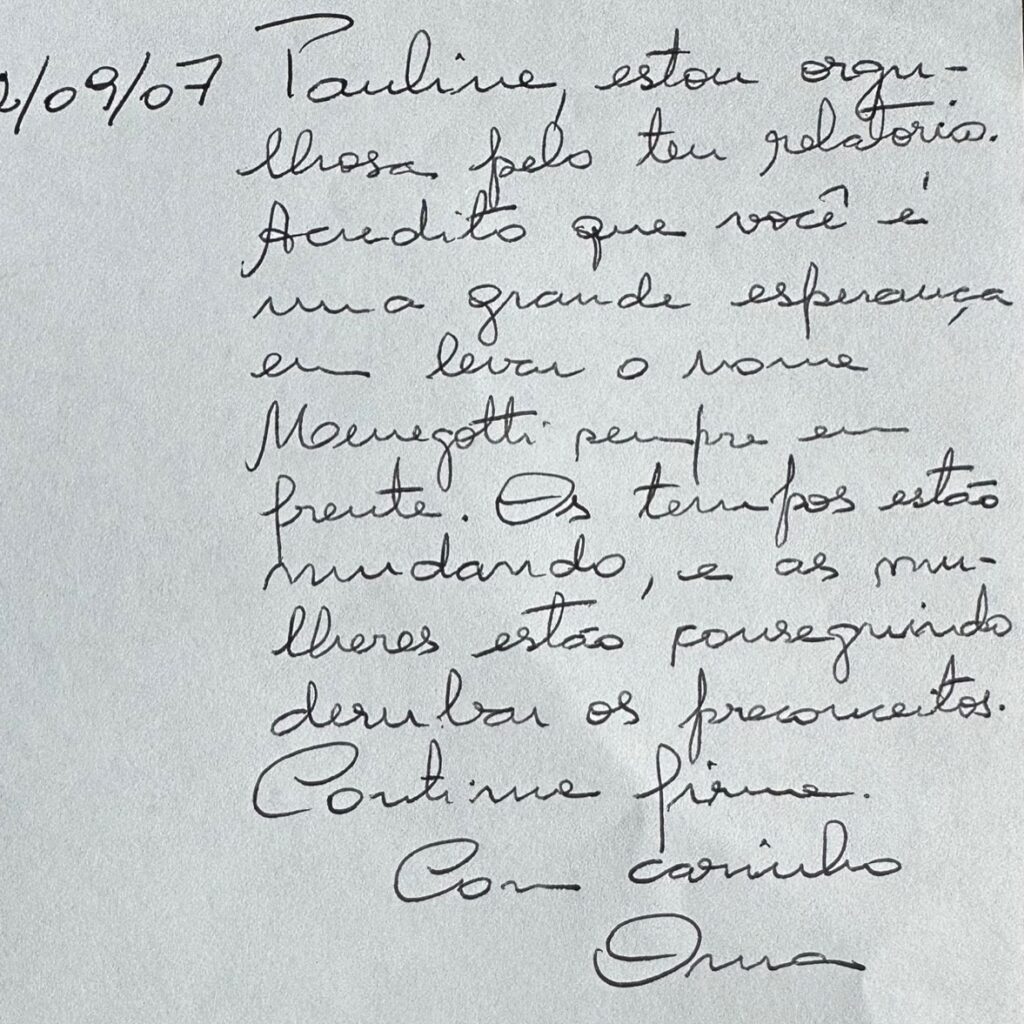 2/09/07 Pauline, estou orgu-
lhosa pelo teu relatorio.
Acredito que você é
uma grande esperança
em levar o nome
Menegotti sempre em
frente. Os tempos estão
mudando, e as mu-
lheres estão conseguindo
derubar os preconceitos.
Continue firme.
Com carinho
Oma